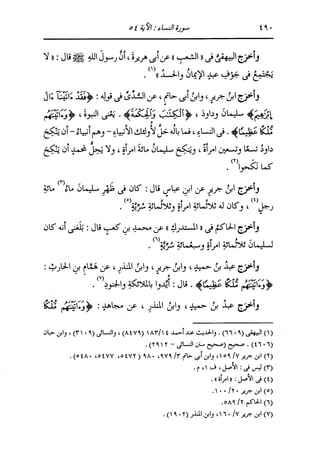 ٤٩٠ سورة النساء : الآية ٥٤
وأخرج البيهقيُّ فى «الشعب» عن أبى هريرةَ ، أن رسولَ اللهِ ﷺ قال : «لا
يَجْتَمِعُ فى جَوْفِ عبدٍ الإيمانُ والحسدُ»(١) .
وأخرج ابنُ جريرٍ ، وابنُ أبى حاتمٍ ، عن السُّدِّىِّ فى قولِه : ﴿فَقَدْ ءَاتَيْنَآ ءَالَ
إِبْرَٰهِيمَ﴾ سليمانَ وداودَ ، ﴿ٱلْكِتَٰبَ وَٱلْحِكْمَةَ﴾ . يعنى النبوةَ ، ﴿وَءَاتَيْنَٰهُم
مُّلْكًا عَظِيمًا﴾ . فى النساءِ ، فما بالُه حَلَّ لأولئك الأنبياءِ - وهم أنبياءُ - أن يَنكِحَ
داودُ تسعًا وتسعين امرأةً ، ويَنكِحَ سليمانُ مائةَ امرأةٍ ، ولا يَحِلُّ لمحمدٍ أن يَنكِحَ
كما نكَحوا(٢) .
وأخرج ابنُ جريرٍ عن ابنِ عباسٍ قال : كان فى ظَهْرِ سليمانَ ماءُ(٣) مائةِ
رجلٍ(٤) ، وكان له ثلاثُمائةِ امرأةٍ وثلاثُمائةِ سُرِّيَّةٍ(٥) .
وأخرج الحاكمُ فى «المستدركِ» عن محمدِ بنِ كعبٍ قال : بلَغنى أنه كان
لسليمانَ ثلاثُمائةِ امرأةٍ وسبعُمائةِ سُرِّيَّةٍ(٦) .
وأخرج عبدُ بنُ حميدٍ ، وابنُ جريرٍ ، وابنُ المنذرِ ، عن همَّامِ بنِ الحارثِ :
﴿وَءَاتَيْنَٰهُم مُّلْكًا عَظِيمًا﴾ . قال : أُيِّدوا بالملائكةِ والجنودِ(٧) .
وأخرج عبدُ بنُ حميدٍ ، وابنُ المنذرِ ، عن مجاهدٍ : ﴿وَءَاتَيْنَٰهُم مُّلْكًا
(١) البيهقى (٦٦٠٩) . والحديث عند أحمد ١٨٣/١٤ (٨٤٧٩) ، والنسائى (٣١٠٩) ، وابن حبان
(٤٦٠٦) . صحيح (صحيح سنن النسائى - ٢٩١٢) .
(٢) ابن جرير ١٥٩/٧ ، وابن أبى حاتم ٩٧٩/٣ ، ٩٨٠ (٥٤٧٢ ، ٥٤٧٧ ، ٥٤٨٠) .
(٣) ليس فى : الأصل ، ف ١ ، م .
(٤) فى الأصل : «امرأة» .
(٥) ابن جرير ١٠٠/٢٠ .
(٦) الحاكم ٥٨٩/٢ .
(٧) ابن جرير ١٦٠/٧ ، وابن المنذر (١٩٠٢) .